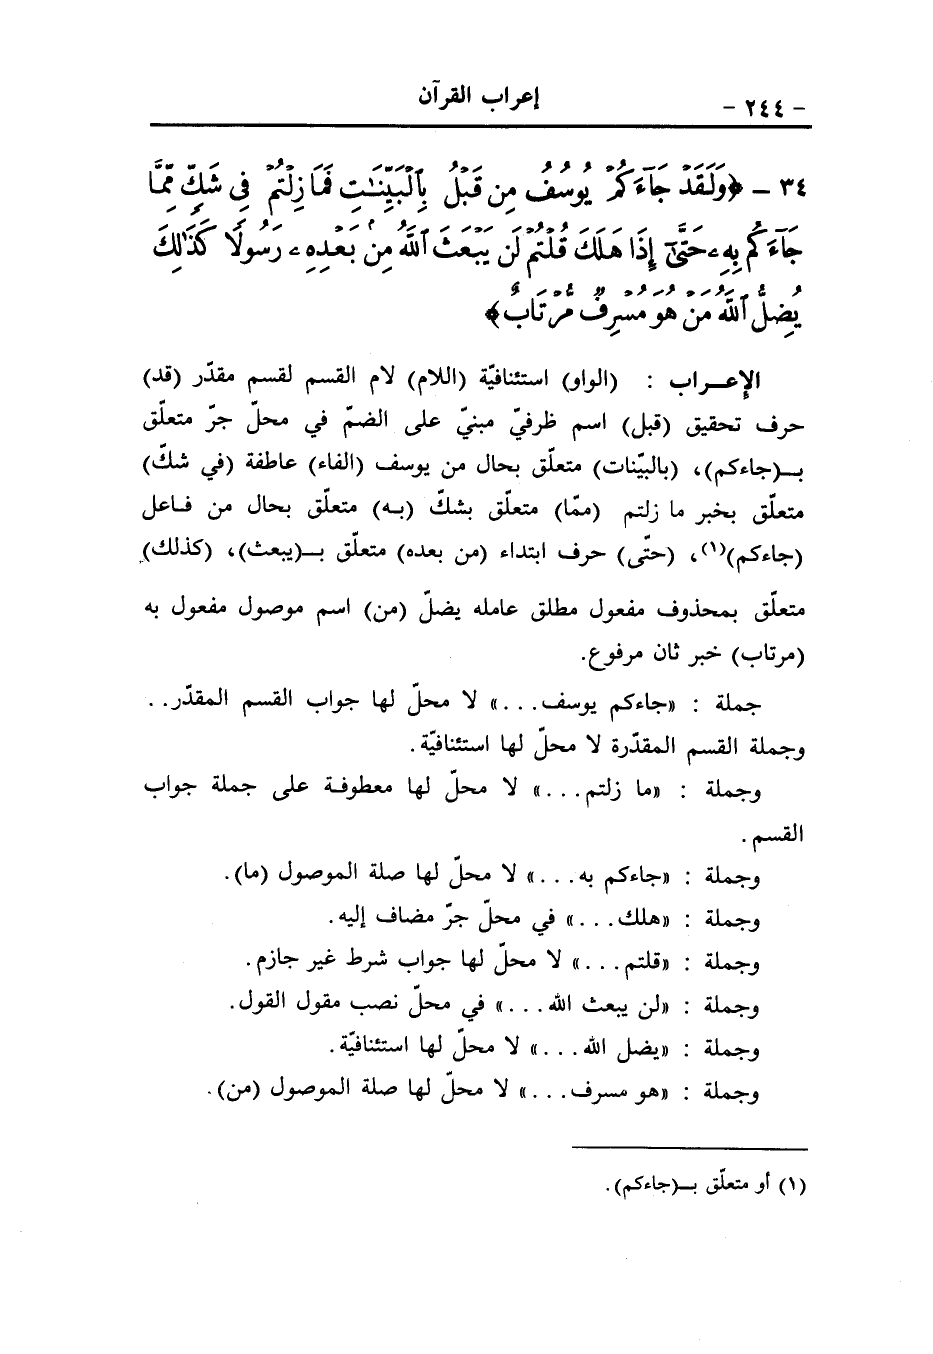 - ٢٤٤ -
إعراب القرآن
٣٤ - ﴿وَلَقَدْ جَآءَكُمْ يُوسُفُ مِن قَبْلُ بِٱلْبَيِّنَٰتِ فَمَا زِلْتُمْ فِى شَكٍّ مِّمَّا
جَآءَكُم بِهِۦ حَتَّىٰٓ إِذَا هَلَكَ قُلْتُمْ لَن يَبْعَثَ ٱللَّهُ مِنۢ بَعْدِهِۦ رَسُولًا كَذَٰلِكَ
يُضِلُّ ٱللَّهُ مَنْ هُوَ مُسْرِفٌ مُّرْتَابٌ﴾
الإعـراب : (الواو) استئنافيّة (اللام) لام القسم لقسم مقدّر (قد)
حرف تحقيق (قبل) اسم ظرفيّ مبنيّ على الضمّ في محلّ جرّ متعلّق
بـ(جاءكم)، (بالبيّنات) متعلّق بحال من يوسف (الفاء) عاطفة (في شكّ)
متعلّق بخبر ما زلتم (ممّا) متعلّق بشكّ (بـه) متعلّق بحال من فـاعل
(جاءكم)(١)، (حتّى) حرف ابتداء (من بعده) متعلّق بـ(يبعث)، (كذلك)
متعلّق بمحذوف مفعول مطلق عامله يضلّ (من) اسم موصول مفعول به
(مرتاب) خبر ثان مرفوع.
جملة : «جاءكم يوسف...» لا محلّ لها جواب القسم المقدّر..
وجملة القسم المقدّرة لا محلّ لها استئنافيّة.
وجملة : «ما زلتم...» لا محلّ لها معطوفـة على جملة جواب
القسم.
وجملة : «جاءكم به...» لا محلّ لها صلة الموصول (ما).
وجملة : «هلك...» في محلّ جرّ مضاف إليه.
وجملة : «قلتم...» لا محلّ لها جواب شرط غير جازم.
وجملة : «لن يبعث الله...» في محلّ نصب مقول القول.
وجملة : «يضل الله...» لا محلّ لها استئنافيّة.
وجملة : «هو مسرف...» لا محلّ لها صلة الموصول (من).
(١) أو متعلّق بـ(جاءكم).